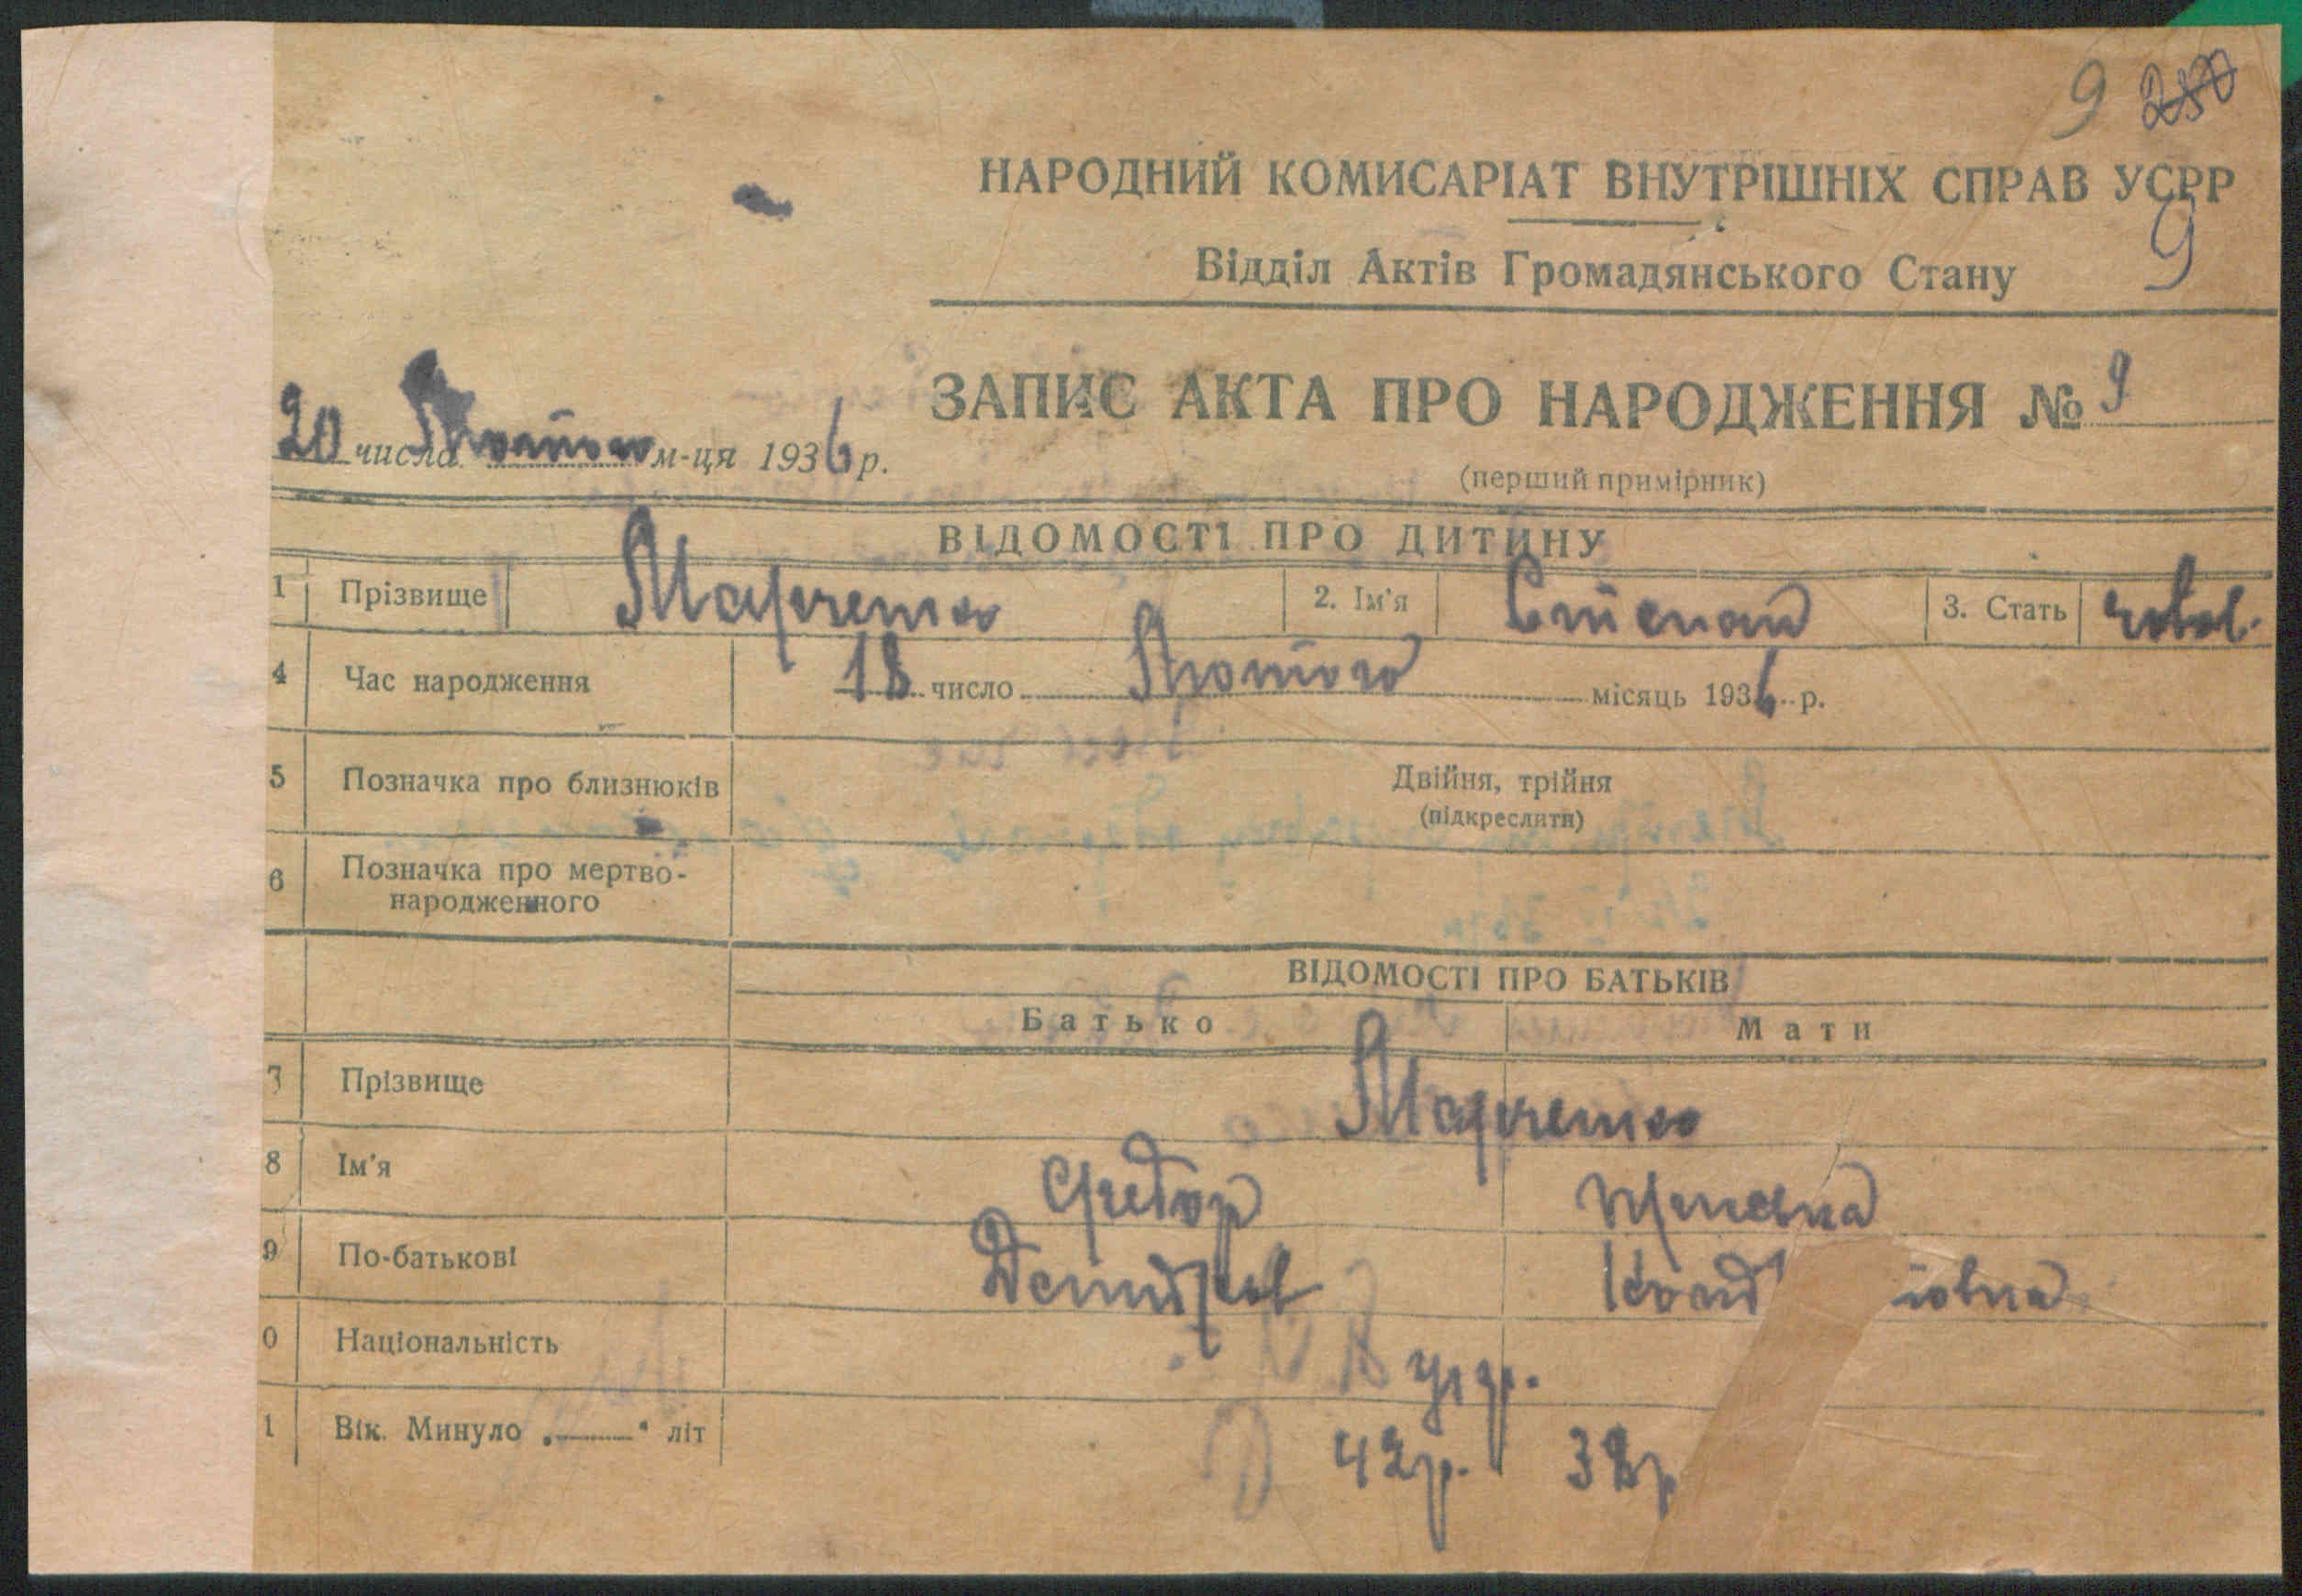 9 250
НАРОДНИЙ КОМИСАРІАТ ВНУТРІШНІХ СПРАВ УСРР
9
Відділ Актів Громадянського Стану
ЗАПИС АКТА ПРО НАРОДЖЕННЯ № 9
20 числа Лютого м-ця 1936 р.
(перший примірник)
ВІДОМОСТІ ПРО ДИТИНУ
1 Прізвище Марченко 2. Ім'я Степан 3. Стать чолов.
4 Час народження 18 число Лютого місяць 1936 р.
5 Позначка про близнюків Двійня, трійня
(підкреслити)
6 Позначка про мертво-
народженного
ВІДОМОСТІ ПРО БАТЬКІВ
Батько Мати
7 Прізвище Марченко
8 Ім'я Федор
9 По-батькові
0 Національність укр.
1 Вік. Минуло „ “ літ 42р. 32р